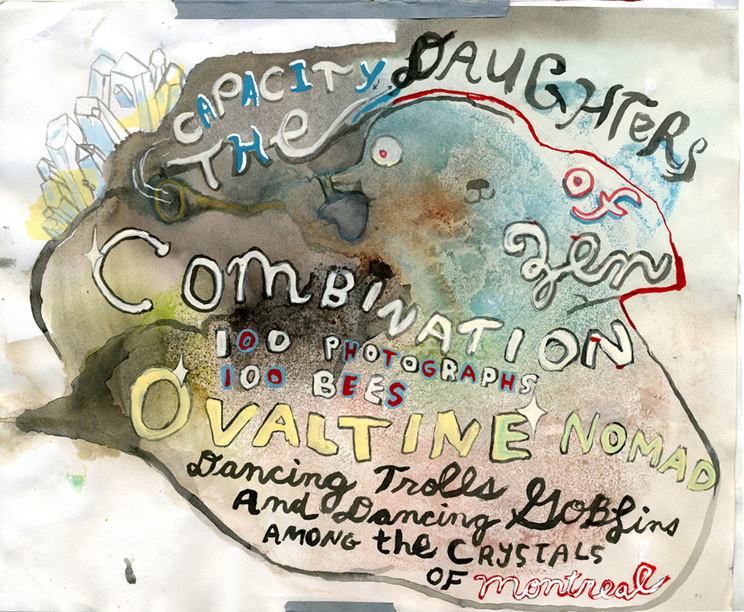 CAPACITY
THE
DAUGHTERS
OF
Zen
COMBINATION
100 PHOTOGRAPHS
100 BEES
OVALTINE NOMAD
Dancing Trolls
And Dancing Goblins
AMONG the CRYSTALS
OF montreal